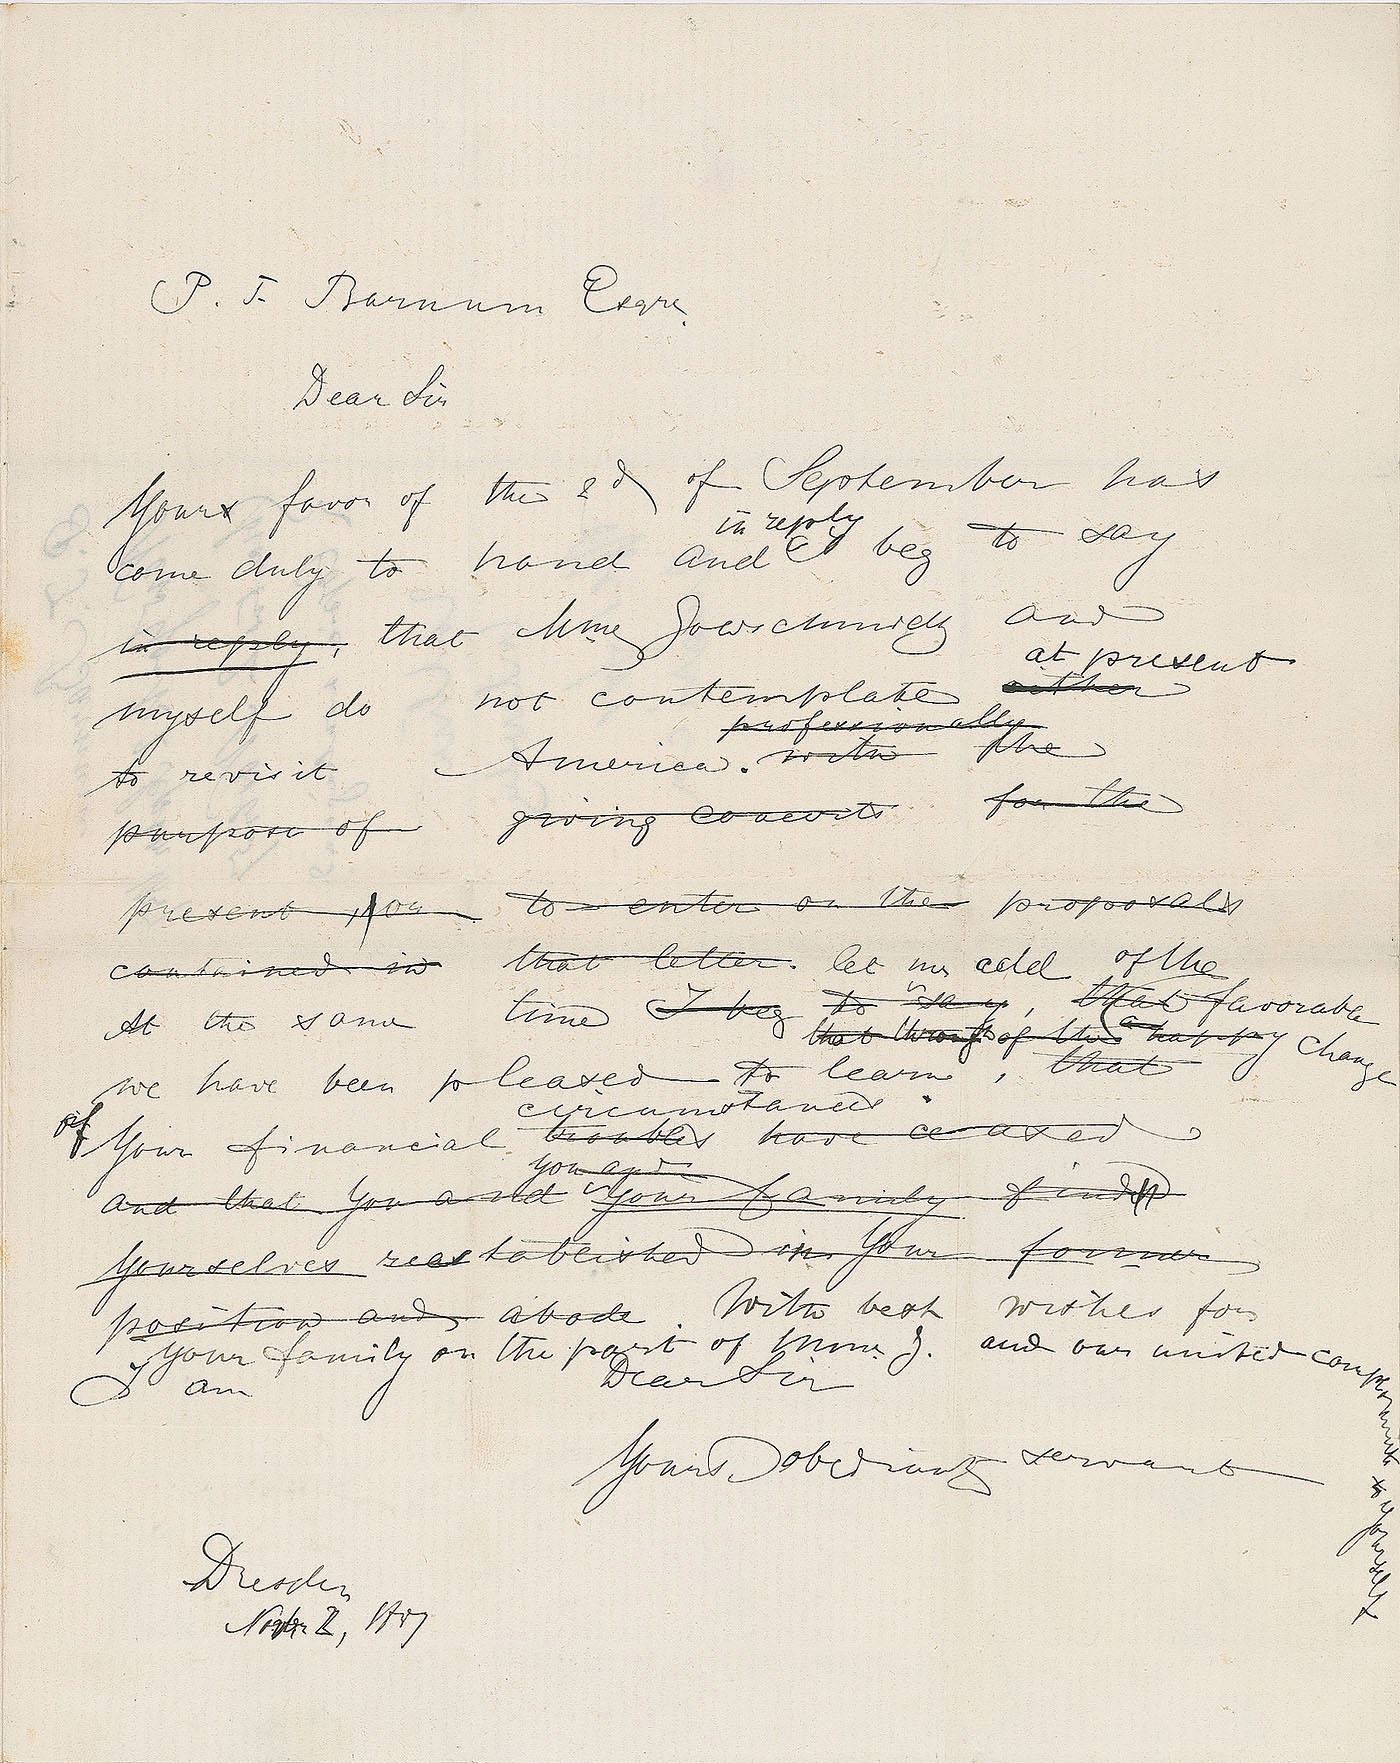 P. T. Barnum Esqre.
Dear Sir
Yours favor of the 2d of September has
in reply
come duly to hand and I beg to say
in reply, that Mme Goldschmidt and
at present
myself do not contemplate either
professionally
to revisit America. with the
purpose of giving concerts for the
present, nor to enter on the proposals
contained in that letter. let me add of the
At the same time I beg to say, that favorable
that through of the a happy change
we have been pleased to learn, that
circumstances.
of Your financial troubles have ceased
you and
and that You and your family find
Yourselves reestablished in Your former
position and abode. With best wishes for
your family on the part of Mme. G. and our united compliments to yourself
I am Dear Sir
Yours obedient servant
Dresden
Novbr 2, 1857